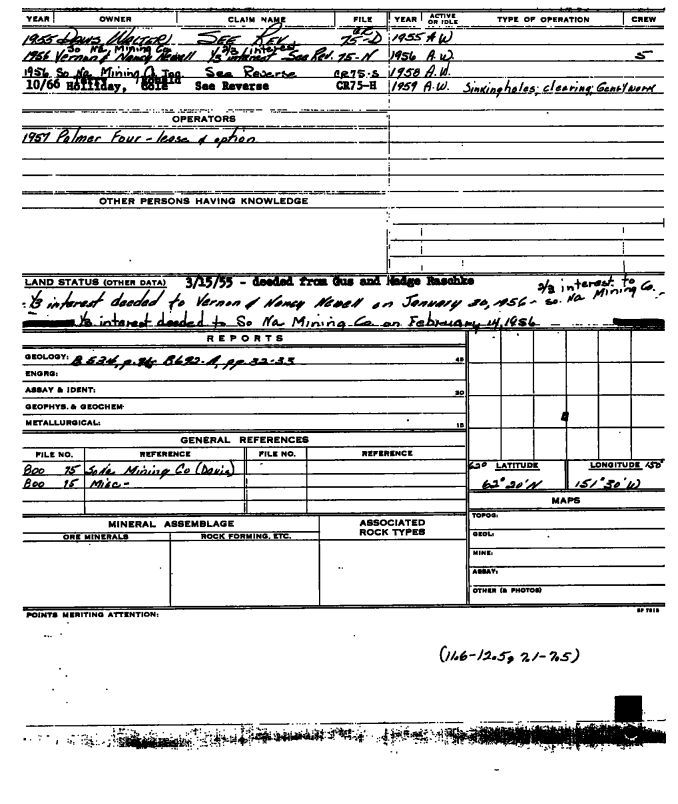 YEAR OWNER CLAIM NAME FILE YEAR ACTIVE OR IDLE TYPE OF OPERATION CREW
1955 Davis, Walter SEE REV. CR 75-D 1955 A W
So Na Mining Co. 2/3 interest
1956 Vernon & Nancy Newell 1/3 interest See Rev. 75-N 1956 A.W. 5
1956 So Na Mining Co Inc. See Reverse CR75-S 1958 A.W.
10/66 Holliday, See Reverse CR75-H 1959 A.W. Sinking holes; clearing; Gen'l work
OPERATORS
1957 Palmer Four - lease & option
OTHER PERSONS HAVING KNOWLEDGE
LAND STATUS (OTHER DATA) 3/15/55 - deeded from Gus and Madge Raschke
2/3 interest to So. Na Mining Co.
1/3 interest deeded to Vernon & Nancy Newell on January 20, 1956 -
1/3 interest deeded to So Na Mining Co on February 14, 1956
REPORTS
GEOLOGY: B 534, p. B692-A, pp 32-33 45
ENGRG:
ASSAY & IDENT: 30
GEOPHYS. & GEOCHEM:
METALLURGICAL: 15
GENERAL REFERENCES
FILE NO. REFERENCE FILE NO. REFERENCE
Boo 75 SoNa Mining Co (Davis)
Boo 75 Misc -
62° LATITUDE LONGITUDE 150°
62° 20' N 151° 30' W
MAPS
TOPOG:
GEOL:
MINE:
ASSAY:
OTHER (& PHOTOS)
MINERAL ASSEMBLAGE ASSOCIATED ROCK TYPES
ORE MINERALS ROCK FORMING, ETC.
POINTS MERITING ATTENTION:
(11.6-12.5, 7.1-7.5)